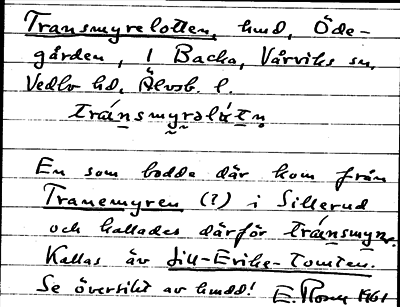 Transmyrelotten, hmd, Öde-
gården, 1 Backa, Vårviks sn,
Vedbo hd, Älvsb. l.
En som bodde där kom från
Tranemyren (?) i Sillerud
och kallades därför
Kallas äv Jill-Eriks-Tomten.
Se översikt av hmdd! 1961